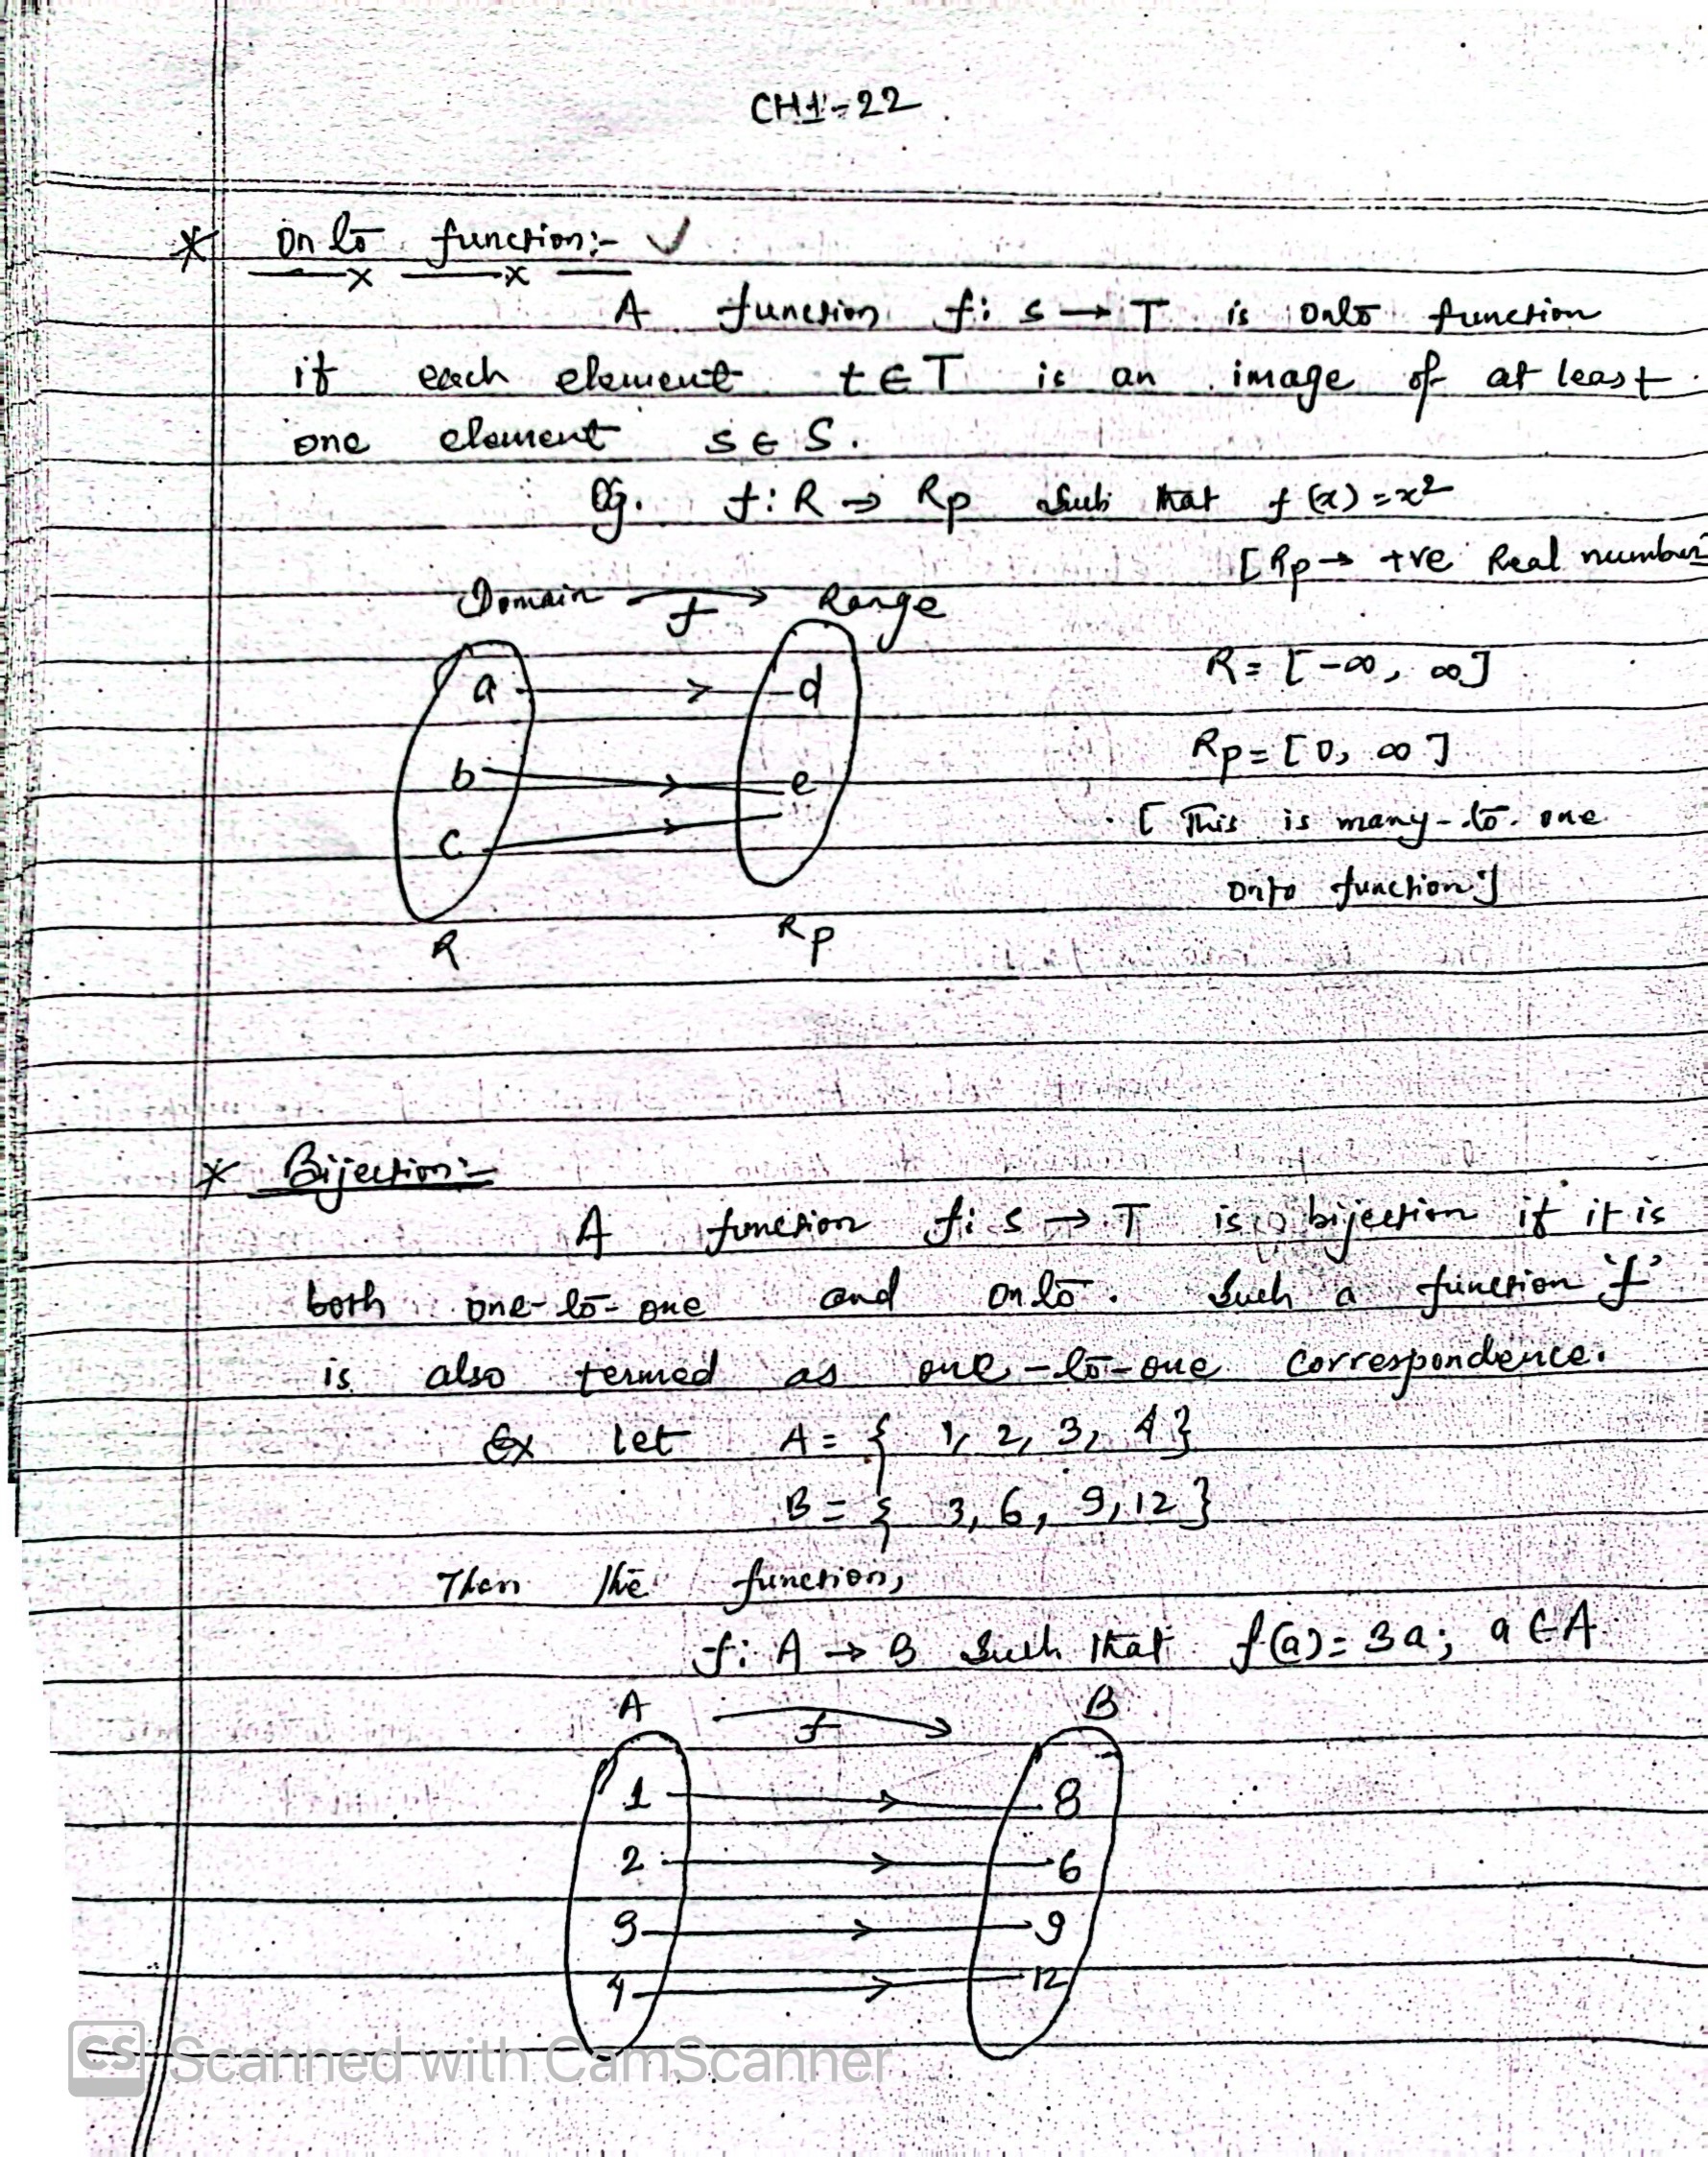 CH1:-22
* Onto function:- ✓
A function f: S → T is onto function
if each element t ∈ T is an image of at least
one element s ∈ S.
Eg. f: R → Rp Such that f(x) = x²
[Rp → +ve Real number]
Domain f Range
a d
b e
c
R Rp
R = [-∞, ∞]
Rp = [0, ∞]
[This is many-to-one
onto function]
* Bijection:-
A function f: S → T is bijection if it is
both one-to-one and onto. Such a function 'f'
is also termed as one-to-one correspondence.
Ex let A = { 1, 2, 3, 4 }
B = { 3, 6, 9, 12 }
Then the function,
f: A → B Such that f(a) = 3a; a ∈ A
A f B
1 3
2 6
3 9
4 12
CS Scanned with CamScanner